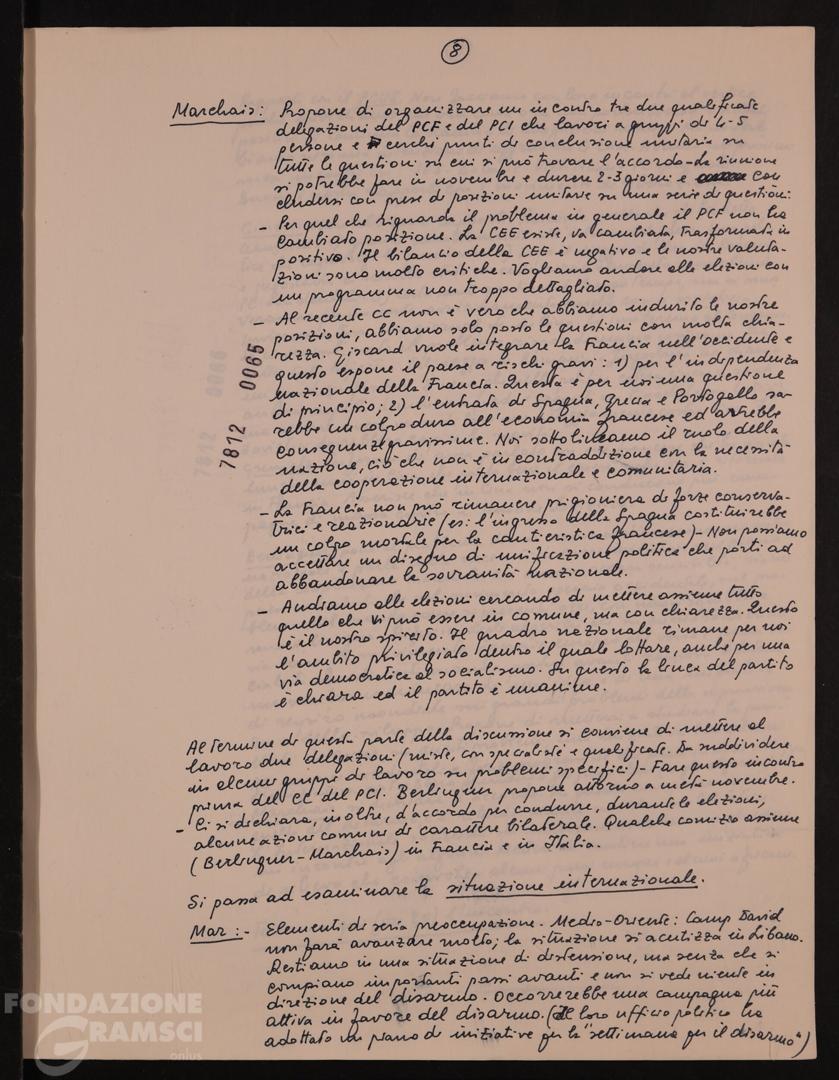 8
Marchais: Propone di organizzare un incontro tra due qualificate
delegazioni del PCF e del PCI che lavori a gruppi di 4-5
persone e cerchi punti di conclusione unitaria su
tutte le questioni su cui si può trovare l'accordo - La riunione
si potrebbe fare in novembre e durare 2-3 giorni e con
cludersi con prese di posizioni unitarie su una serie di questioni:
- Per quel che riguarda il problema in generale il PCF non ha
cambiato posizione. La CEE esiste, va cambiata, trasformata in
positivo. Il bilancio della CEE è negativo e le nostre valuta-
zioni sono molto critiche. Vogliamo andare alle elezioni con
un programma non troppo dettagliato.
- Al recente CC non è vero che abbiamo indurito le nostre
posizioni, abbiamo solo posto le questioni con molta chia-
rezza. Giscard vuole integrare la Francia nell'occidente e
questo espone il paese a rischi gravi: 1) per l'indipendenza
nazionale della Francia. Questa è per noi una questione
di principio; 2) l'entrata di Spagna, Grecia e Portogallo sa-
rebbe un colpo duro all'economia francese ed avrebbe
conseguenze gravissime. Noi sottolineamo il ruolo della
nazione, ciò che non è in contraddizione con la necessità
della cooperazione internazionale e comunitaria.
- La Francia non può rimanere prigioniera di forze conserva-
trici e reazionarie (es: l'ingresso della Spagna costituirebbe
un colpo mortale per la cantieristica francese) - Non possiamo
accettare un disegno di unificazione politica che porti ad
abbandonare la sovranità nazionale.
- Andiamo alle elezioni cercando di mettere assieme tutto
quello che vi può essere in comune, ma con chiarezza. Questo
è il nostro spirito. Il quadro nazionale rimane per noi
l'ambito privilegiato dentro il quale lottare, anche per una
via democratica al socialismo. Su questo la linea del partito
è chiara ed il partito è unanime.
7812 0065
Al termine di questa parte della discussione si conviene di mettere al
lavoro due delegazioni (miste, con specialisti e qualificate. Da suddividere
in alcuni gruppi di lavoro su problemi specifici) - Fare questo incontro
prima del CC del PCI. Berlinguer propone attorno a metà novembre.
- Ci si dichiara, inoltre, d'accordo per condurre, durante le elezioni,
alcune azioni comuni di carattere bilaterale. Qualche comizio assieme
(Berlinguer - Marchais) in Francia e in Italia.
Si passa ad esaminare la situazione internazionale.
Mar: - Elementi di seria preoccupazione. Medio-Oriente: Camp David
non farà avanzare molto; la situazione si acutizza in Libano.
Restiamo in una situazione di distensione, ma senza che si
compiano importanti passi avanti e non si vede niente in
direzione del disarmo. Occorrerebbe una campagna più
attiva in favore del disarmo. (Il loro ufficio politico ha
adottato un piano di iniziative per la "settimana per il disarmo")
FONDAZIONE
GRAMSCI
onlus